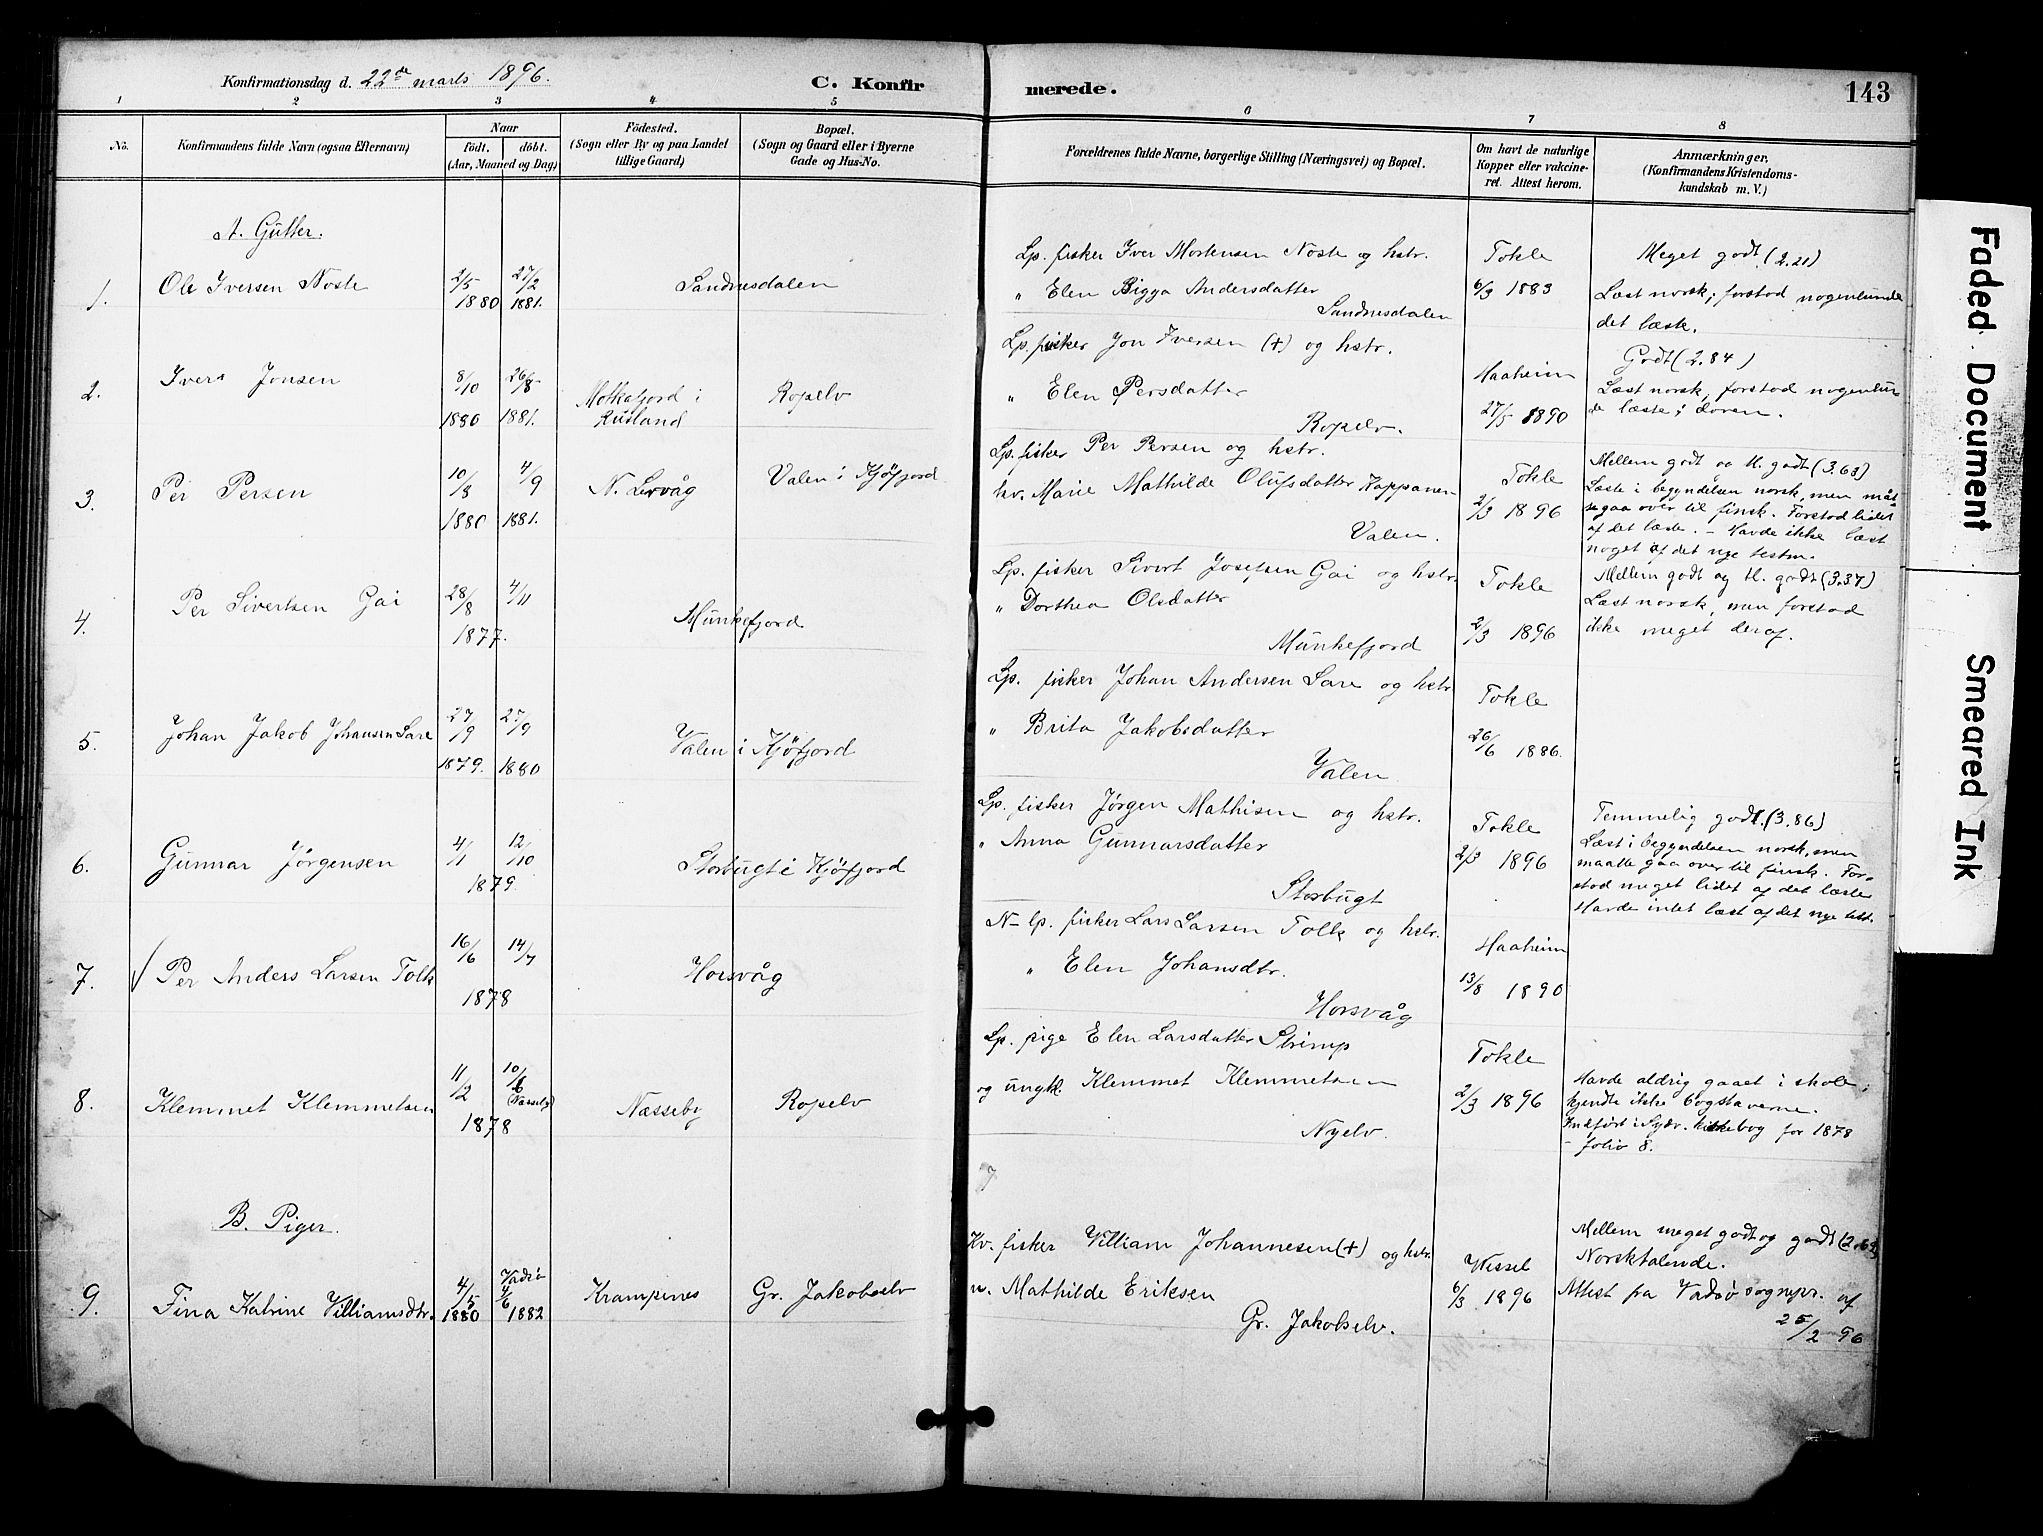 Konfirmationsdag d. 22de marts 1896. C. Konfirmerede. 143
1 2 3 4 5 6 7 8
No.
Konfirmandens fulde Navn (ogsaa Efternavn)
Naar
født. døbt.
(Aar, Maaned og Dag)
Födested.
(Sogn eller By og paa Landet
tillige Gaard)
Bopæl.
(Sogn og Gaard eller i Byerne
Gade og Hus-No.
Forældrenes fulde Navne, borgerlige Stilling (Næringsvei) og Bopæl.
Om havt de naturlige
Kopper eller vakcine-
ret. Attest herom.
Anmærkninger.
(Konfirmandens Kristendoms-
kundskab m. V.)
A. Gutter.
1. Ole Iversen Noste 2/5 1880 27/2 1881. Sandnesdalen
Lp. fisker Iver Mortensen Noste og hstr.
" Elen Bigga Andersdatter
Sandnesdalen
Tokle
6/3 1883
Meget godt (2.21)
Læst norsk; forstod nogenlunde
det læste.
2. Iver Jonsen 8/10 1880 26/8 1881. Motkafjord i
Rusland
Ropelv
Lp. fisker Jon Iversen (+) og hstr.
" Elen Persdatter
Ropelv.
Haaheim
27/5 1890
Godt (2.84)
Læst norsk, forstod nogenlun-
de læste;
3. Per Persen 10/8 1880 4/9 1881. N. Lervåg Valen i Kjöfjord
Lp. fisker Per Persen og hstr.
kv. Marie Mathilde Olufsdatter Kappanen
Valen.
Tokle
2/3 1896
Mellem godt og tl. godt (3.63)
Læste i begyndelsen norsk, men måt-
te gaa over til finsk. Forstod lidet
af det læste. - Havde ikke læst
noget af det nye testm.
4. Per Sivertsen Gai 28/8 4/11 1877. Munkefjord
Lp. fisker Sivert Josefsen Gai og hstr.
" Dorthea Olsdatter
Munkefjord
Tokle
2/3 1896
Mellem godt og tl. godt (3.37)
Læst norsk, men forstod
ikke meget deraf.
5. Johan Jakob Johansen Sare 27/9 1879. 27/9 1880 Valen i Kjöfjord
Lp. fisker Johan Andersen Sare og hstr
" Brita Jakobsdatter
Valen
Tokle
26/6 1886.
6. Gunnar Jørgensen 4/1 12/10 1879. Storbugt i Kjöfjord
Lp. fisker Jørgen Mathisen og hstr.
" Anna Gunnarsdatter
Storbugt
Tokle
2/3 1896
Temmelig godt. (3.86)
Læst i begyndelsen norsk, men
maatte gaa over til finsk. For-
stod meget lidet af det læste
Havde intet læst af det nye test.
7. Per Anders Larsen Tolk 16/6 14/7 1878 Horsvåg
N-lp. fisker Lars Larsen Tolk og hstr.
" Elen Johansdtr.
Horsvåg
Haaheim
13/8 1890
8. Klemmet Klemmetsen 11/2 10/6 (Næsseby) 1878 Næsseby Ropelv
Lp. pige Elen Larsdatter Strimp
og ungk. Klemmet Klemmetsen
Nyelv.
Tokle
2/3 1896
Havde aldrig gaaet i skole,
kjendte ikke bogstaverne.
Indført i Sydv. kirkebog for 1878
- folio 8.
B. Piger.
9. Tina Katrine Villiamsdtr. 4/5 1880 Vadsø 1882 Krampenes Gr. Jakobselv
Kv. fisker Villiam Johannesen (+) og hstr.
n. Mathilde Eriksen
Gr. Jakobselv.
Wessel
6/3 1896
Mellem meget godt og godt
Norsktalende.
Attest fra Vadsø sognepr. af
25/2 96
Faded Document
Smeared Ink